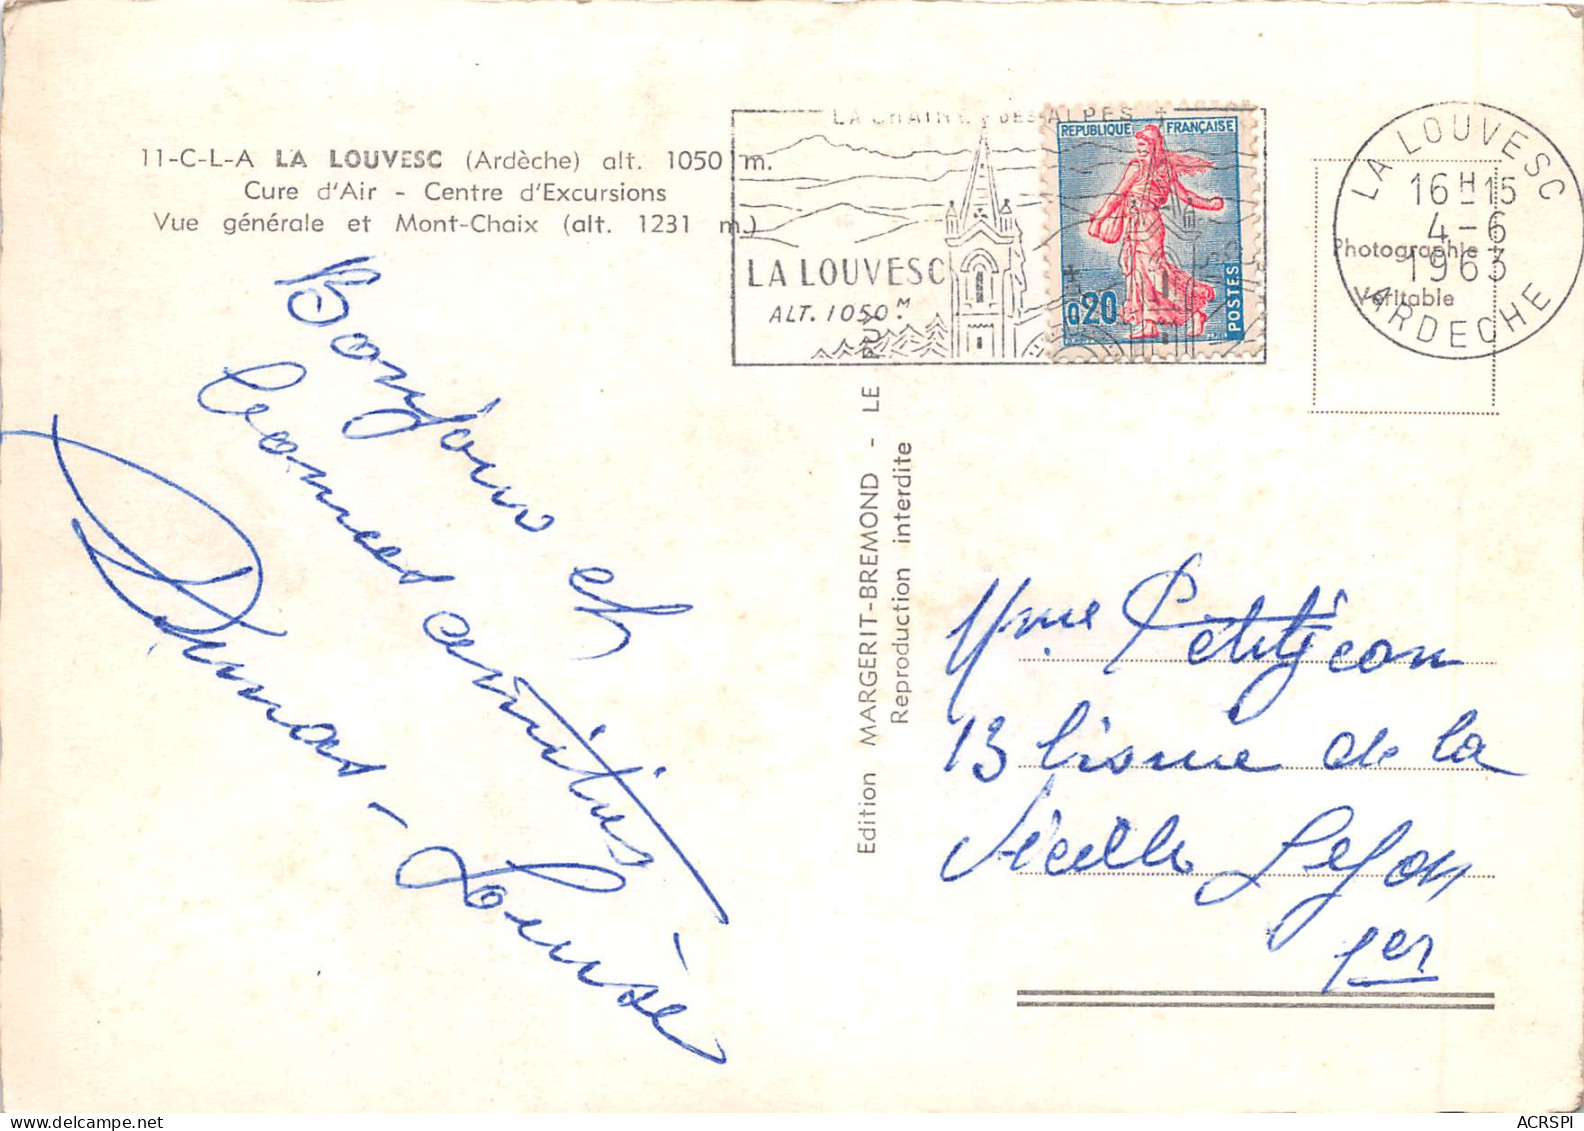 11-C-L-A LA LOUVESC (Ardèche) alt. 1050 m.
Cure d'Air - Centre d'Excursions
Vue générale et Mont-Chaix (alt. 1231 m.)
LA CHAINE DES ALPES
LA LOUVESC
ALT. 1050 M.
REPUBLIQUE FRANÇAISE
0,20
POSTES
LA LOUVESC
16 H 15
4-6
1963
ARDECHE
Photographie
Véritable
Bonjour et
bonnes amitiés
Dumas - Louise
Edition MARGERIT-BREMOND - LE PUY
Reproduction interdite
Mme Petitjean
13 de la
Vieille Lyon
1er
ACRSPI